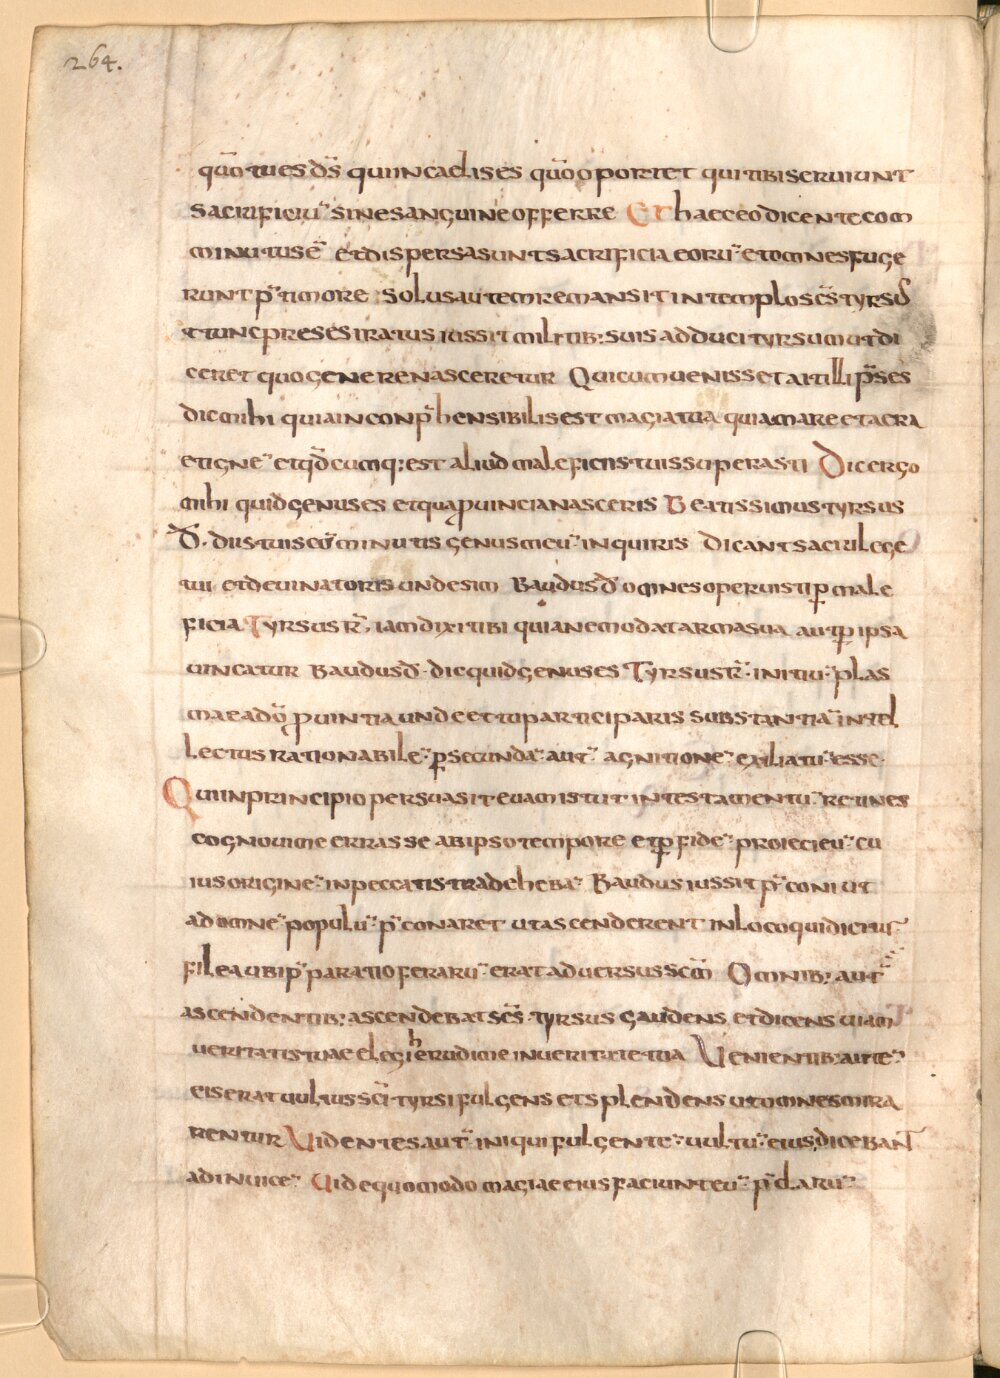 264.
quō tu es ds̄ qui in caelis es quō oportet qui tibi seruiunt
sacrificiū sine sanguine offerre Et haec eo dicente com
minutus ē et dispersa sunt sacrificia eorū et omnes fuge
runt p̄ timore Solus autem remansit in templo scs̄ tyrsus
tunc preses iratus iussit milit̄ib: suis adduci tyrsum ut di
ceret quo genere nasceretur Qui cum uenisset ait illi p̄ses
dic mihi quia inconp̄hensibilis est magia tua quia mare et aera
et ignē et qd̄cumq: est aliud maleficiis tuis superasti Dic ergo
mihi quid genus es et qua ꝓuincia nasceris Beatissimus tyrsus
d̄. diis tuis cōminutis genus meū inquiris Dicant sacrilege
tui et deuinatoris unde sim Baudus d̄ omnes operuisti ꝑ male
ficia Tyrsus r̄. iam dixi tibi quia nemo dat arma sua aut ꝑ ipsa
uincatur Baudus d̄. dic quid genus es Tyrsus r̄. initiū plas
mae adā ꝓuintia unde et tu participaris substantiā intel
lectus rationabilē ꝑ secundā aut̄ agnitionē exiliatū esse
Qui in principio persuasit euam istut in testamentū retines
cognoui me errasse ab ipso tempore et ꝑ fidē proieci eū cu
ius originē in peccatis tradehebā Baudus iussit p̄coni ut
ad omnē populū p̄conaret ut ascenderent in loco qui dicitur
filea ubi p̄paratio ferarū erat aduersus scm̄ Omnib: aut̄
ascendentib: ascendebat scs̄ tyrsus gaudens et dicens uiam
ueritatis tuae elegi herudi me in ueritate tua Uenientib: ante
eis erat uultus sci̅ tyrsi fulgens et splendens ut omnes mira
rentur Uidentes aut̄ iniqui fulgentē uultū eius dicebant
ad inuicē Uide quomodo magiae eius faciunt eū p̄clarū